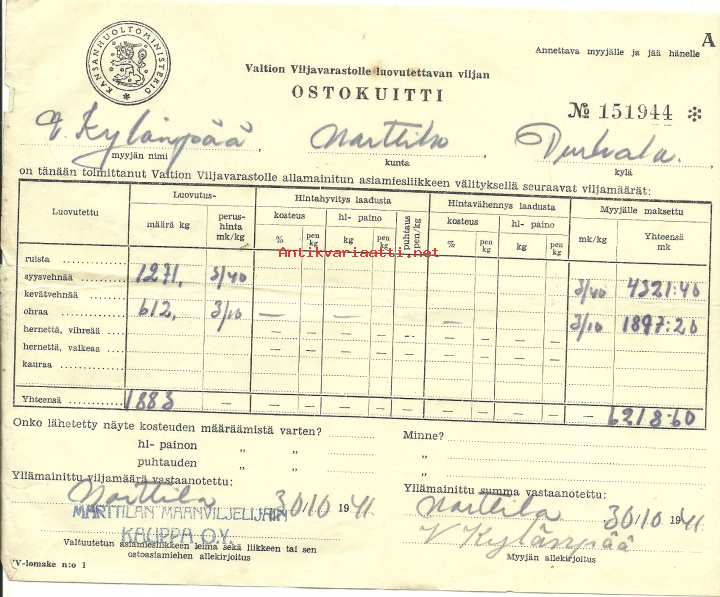 A
Annettava myyjälle ja jää hänelle
KANSANHUOLTOMINISTERIÖ
Valtion Viljavarastolle luovutettavan viljan
OSTOKUITTI
№ 151944 ✻
V. Kylänpää, Marttila, 
myyjän nimi kunta kylä
on tänään toimittanut Valtion Viljavarastolle allamainitun asiamiesliikkeen välityksellä seuraavat viljamäärät:
Luovutettu Luovutus- Hintahyvitys laadusta Hintavähennys laadusta Myyjälle maksettu
määrä kg perus-hinta mk/kg kosteus hl- paino puhtaus pen/kg kosteus hl- paino mk/kg Yhteensä mk
% pen kg kg pen kg % pen kg kg pen kg
Antikvariaatti.net
ruista
syysvehnää 1271, 3/40 3/40 4321:40
kevätvehnää
ohraa 612, 3/10 — — — 3/10 1897:20
hernettä, vihreää — — — — -- — — — —
hernettä, valkeaa — — — — — — — —
kauraa
Yhteensä 1883 — — — — — — — — — — — 6218:60
Onko lähetetty näyte kosteuden määräämistä varten? Minne?
hl- painon „ „ „
puhtauden „ „ „
Yllämainittu viljamäärä vastaanotettu: Yllämainittu summa vastaanotettu:
Marttila 30/10 1941 Marttila 30/10 1941
MARTTILAN MAANVILJELIJAIN
KAUPPA O.Y.
V Kylänpää
Valtuutetun asiamiesliikkeen leima sekä liikkeen tai sen
ostoasiamiehen allekirjoitus
Myyjän allekirjoitus
VV-lomake n:o 1